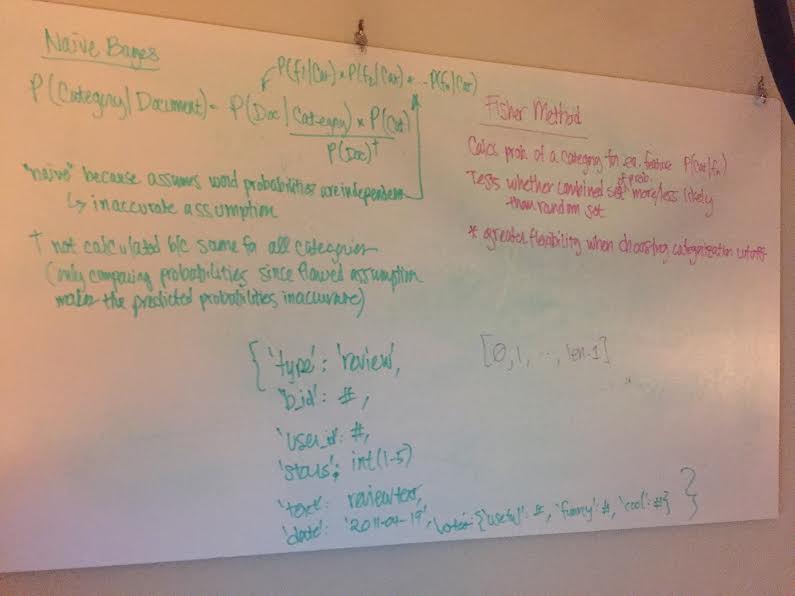 Naive Bayes
P(f1|Cat) * P(f2|Cat) * ... P(fn|Cat)
P(Category|Document) = P(Doc|Category) * P(Cat)
P(Doc)†
"naive" because assumes word probabilities are independent
↳ inaccurate assumption
† not calculated b/c same for all categories
(only comparing probabilities since flawed assumption
makes the predicted probabilities inaccurate)
Fisher Method
Calcs prob of a category for ea. feature P(Cat|fn)
Tests whether combined set of prob. more/less likely
than random set
* greater flexibility when choosing categorization cutoffs
[0, 1, ..., len-1]
{'type': 'review',
'b_id': #,
'user_id': #,
'stars': int(1-5)
'text': review text,
'date': '2011-04-19', votes: {'useful': #, 'funny': #, 'cool': #} }